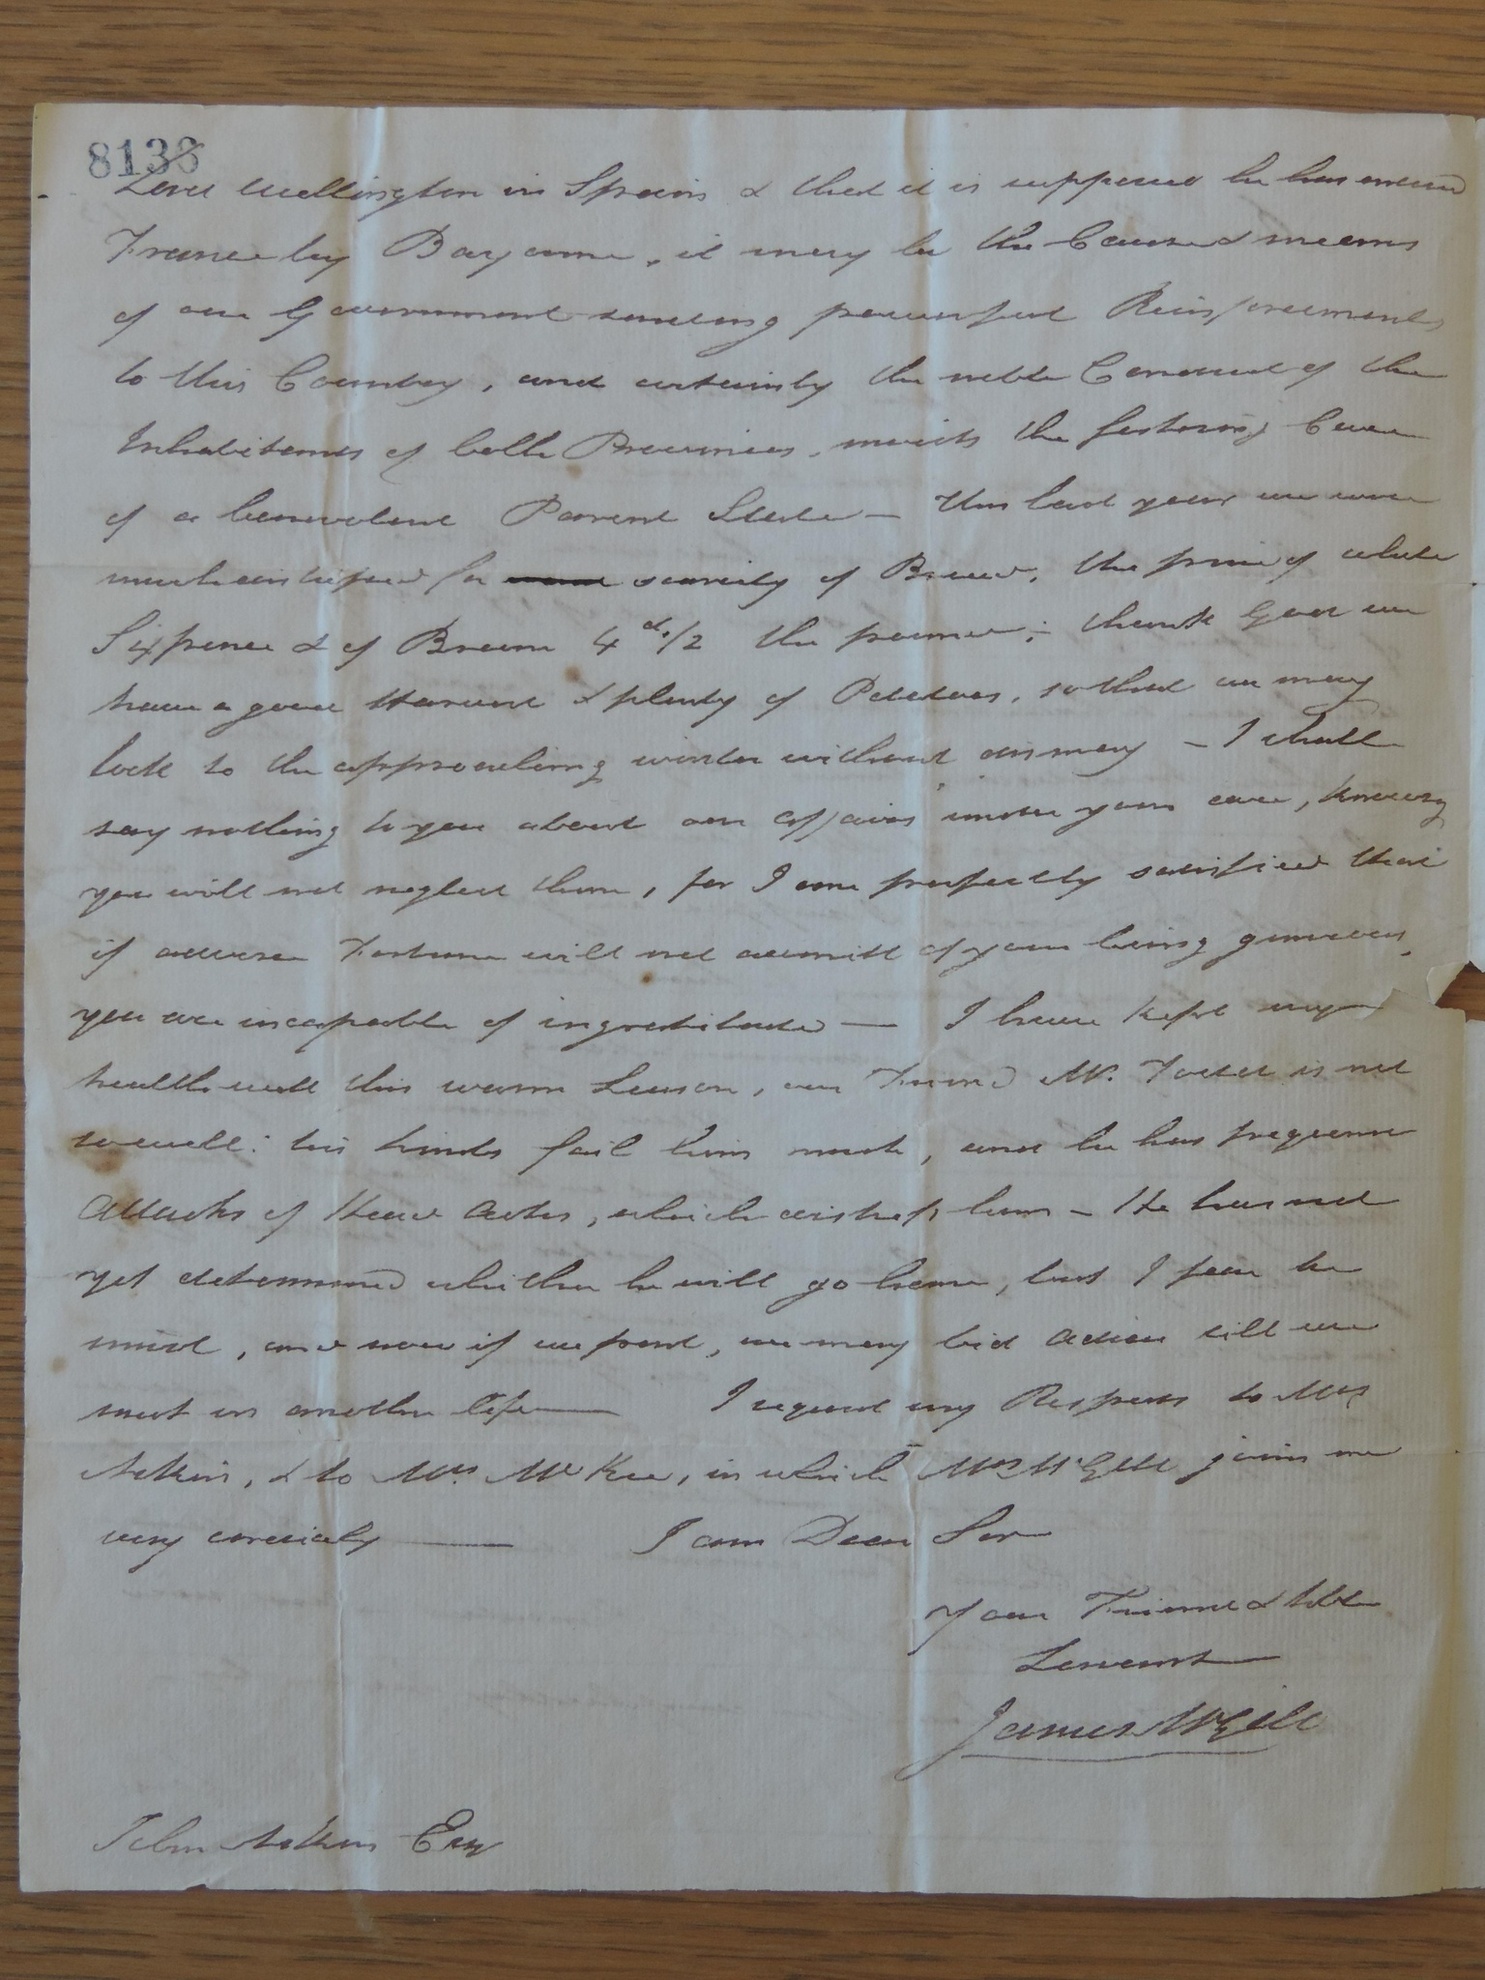 8133
Lord Wellington in Spain & that it is supposed he has entered
France by Bayonne, it may be the Cause & means
of our Government sending powerful Reinforcements
to this Country, and certainly the noble Conduct of the
Inhabitants of both Provinces, merits the fostering Care
of a benevolent Parent State — This last year we were
much distressed for scarcity of Bread, the price of white
Sixpence & of Brown 4d.1/2 the pound; thank God we
have a good Harvest & plenty of Potatoes, so that we may
look to the approaching winter without dismay – I shall
say nothing to you about our affairs under your care, knowing
you will not neglect them, for I am perfectly satisfied that
if adverse Fortune will not admitt of your being generous,
you are incapable of ingratitude — I have kept my
health well this warm Season, our Friend Mr. Todd is not
so well: his hinds fail him much, and he has frequent
Attacks of Head Aches, which distress him – He has not
yet determined whither he will go home, but I fear he
must, and now if we part, we may bid adieu till we
meet in another life — I request my Respects to Mrs
Askin, & to Mrs. McKee, in which Mrs McGill joins me
very cordialy — I am Dear Sir
Your Friend & Hble
Servant
James McGill
John Askin Esq